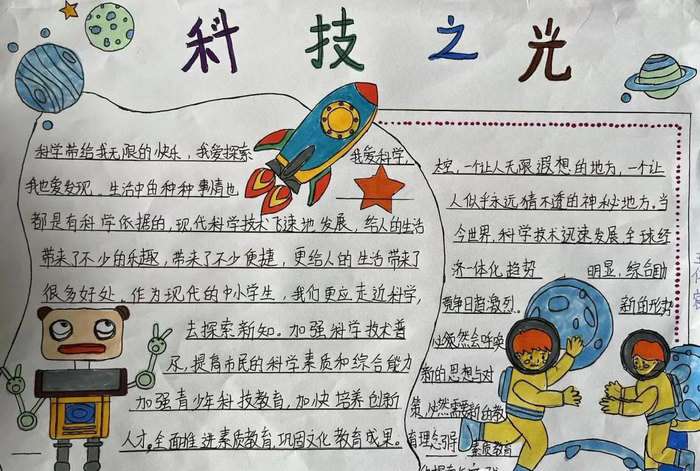 科技之光
科学带给我无限的快乐，我爱探索
我爱科学，
我也爱发现。生活中的种种事情也
都是有科学依据的，现代科学技术飞速地发展，给人的生活
带来了不少的乐趣，带来了不少便捷，更给人的生活带来了
很多好处。作为现代的中小学生，我们更应走近科学，
去探索新知。加强科学技术普
及，提育市民的科学素质和综合能力
加强青少年科技教育，加快培养创新
人才。全面推进素质教育，巩固文化教育成果。
太空，一个让人无限遐想的地方，一个让
人似乎永远猜不透的神秘地方。当
今世界，科学技术迅速发展，全球经
济一体化趋势 明显，综合国
竞争日趋激烈。 新的形势
必然会呼唤
新的思想与对
策，必然需要新的教
育理念引 素质教育